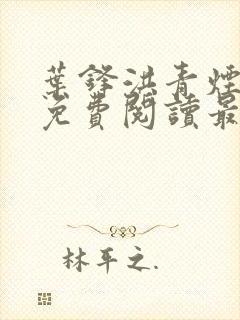 葉鋒洪青煙
免費閱讀最
林平之.